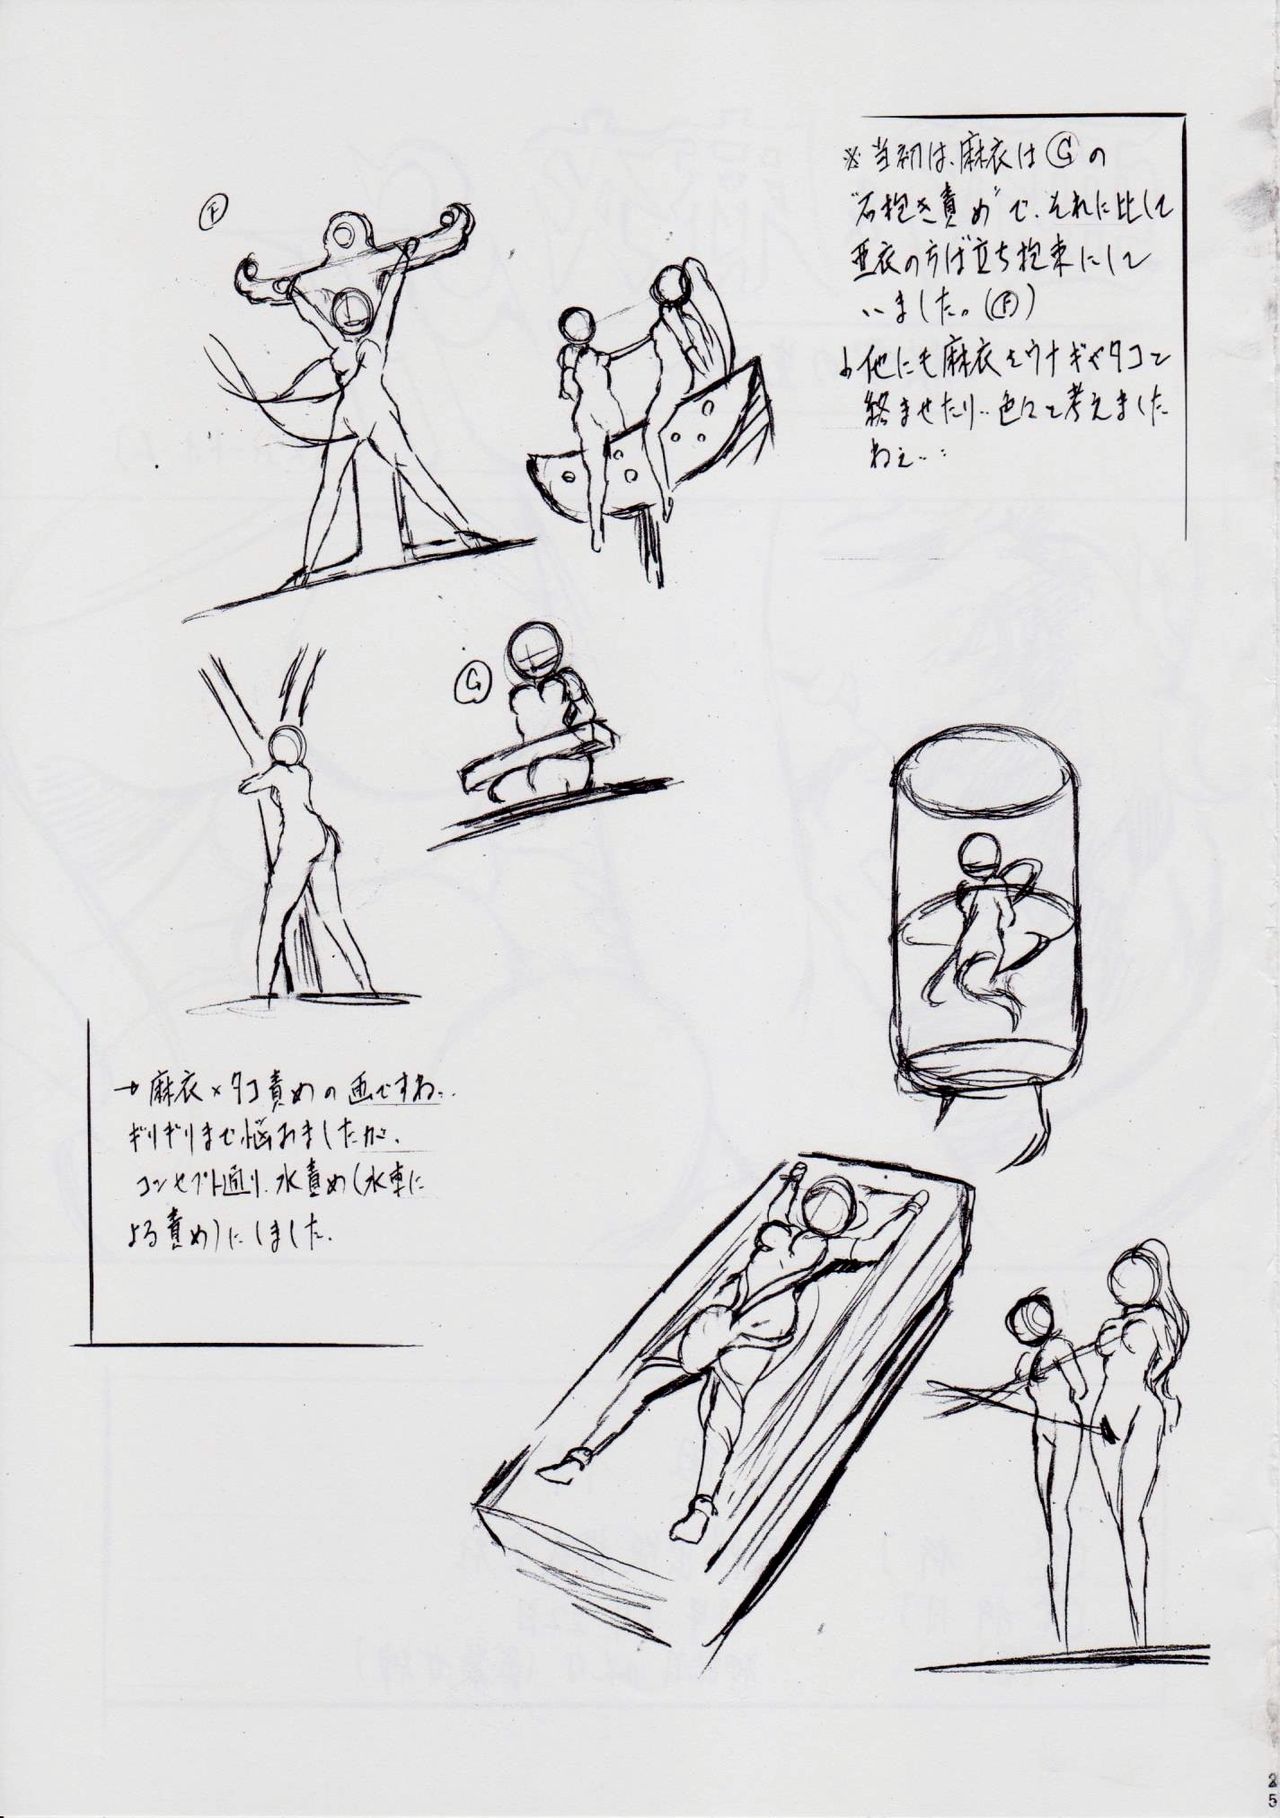 ※当初は、麻衣はⒼの
"石抱き責め"で、それに比して
亜衣の方は立ち拘束にして
いました。(Ⓕ)
他にも麻衣をウナギやタコと
絡ませたり‥色々と考えました
ねぇ‥:
Ⓕ
Ⓖ
→麻衣×タコ責めの画ですね‥
ギリギリまで悩みましたが、
コンセプト通り、水責め(水車に
よる責め)にしました.
25